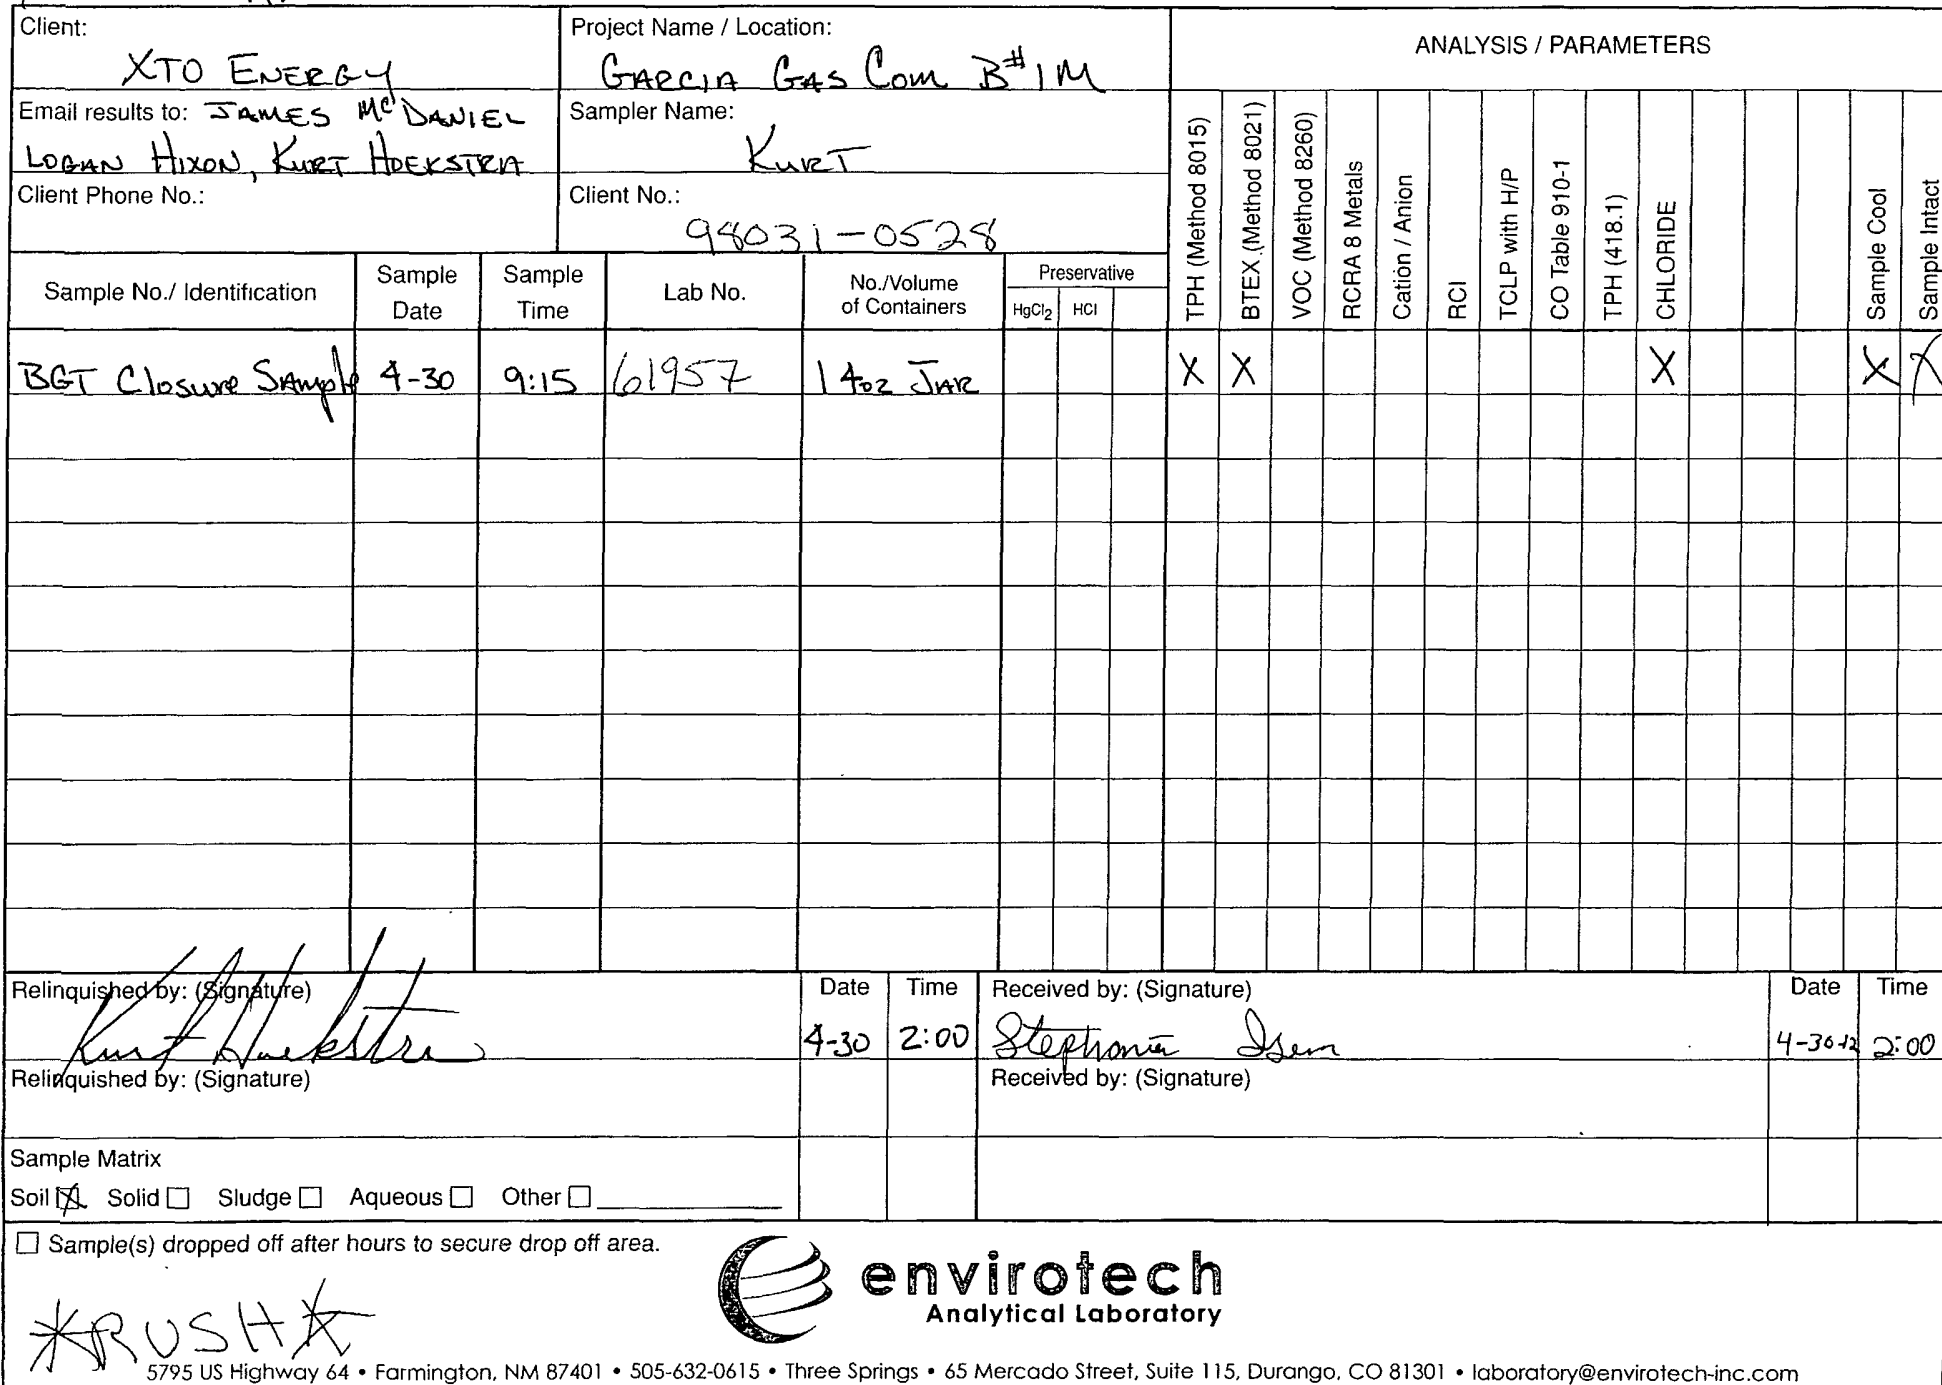 Client:
XTO ENERGY
Project Name / Location:
GARCIA GAS COM B#1M
ANALYSIS / PARAMETERS
Email results to: JAMES McDANIEL
LOGAN HIXON, KURT HOEKSTRA
Sampler Name:
KURT
Client Phone No.:
Client No.:
98031-0528
Sample No./ Identification
Sample Date
Sample Time
Lab No.
No./Volume of Containers
Preservative
HgCl2
HCl
TPH (Method 8015)
BTEX (Method 8021)
VOC (Method 8260)
RCRA 8 Metals
Cation / Anion
RCI
TCLP with H/P
CO Table 910-1
TPH (418.1)
CHLORIDE
Sample Cool
Sample Intact
BGT Closure Sample 4-30 9:15 61957 1 4oz JAR X X X X X
Relinquished by: (Signature)
Kurt Hoekstra
Date
4-30
Time
2:00
Received by: (Signature)
Date
4-30-12
Time
2:00
Relinquished by: (Signature)
Received by: (Signature)
Sample Matrix
Soil X Solid Sludge Aqueous Other
Sample(s) dropped off after hours to secure drop off area.
*RUSH*
envirotech
Analytical Laboratory
5795 US Highway 64 • Farmington, NM 87401 • 505-632-0615 • Three Springs • 65 Mercado Street, Suite 115, Durango, CO 81301 • laboratory@envirotech-inc.com